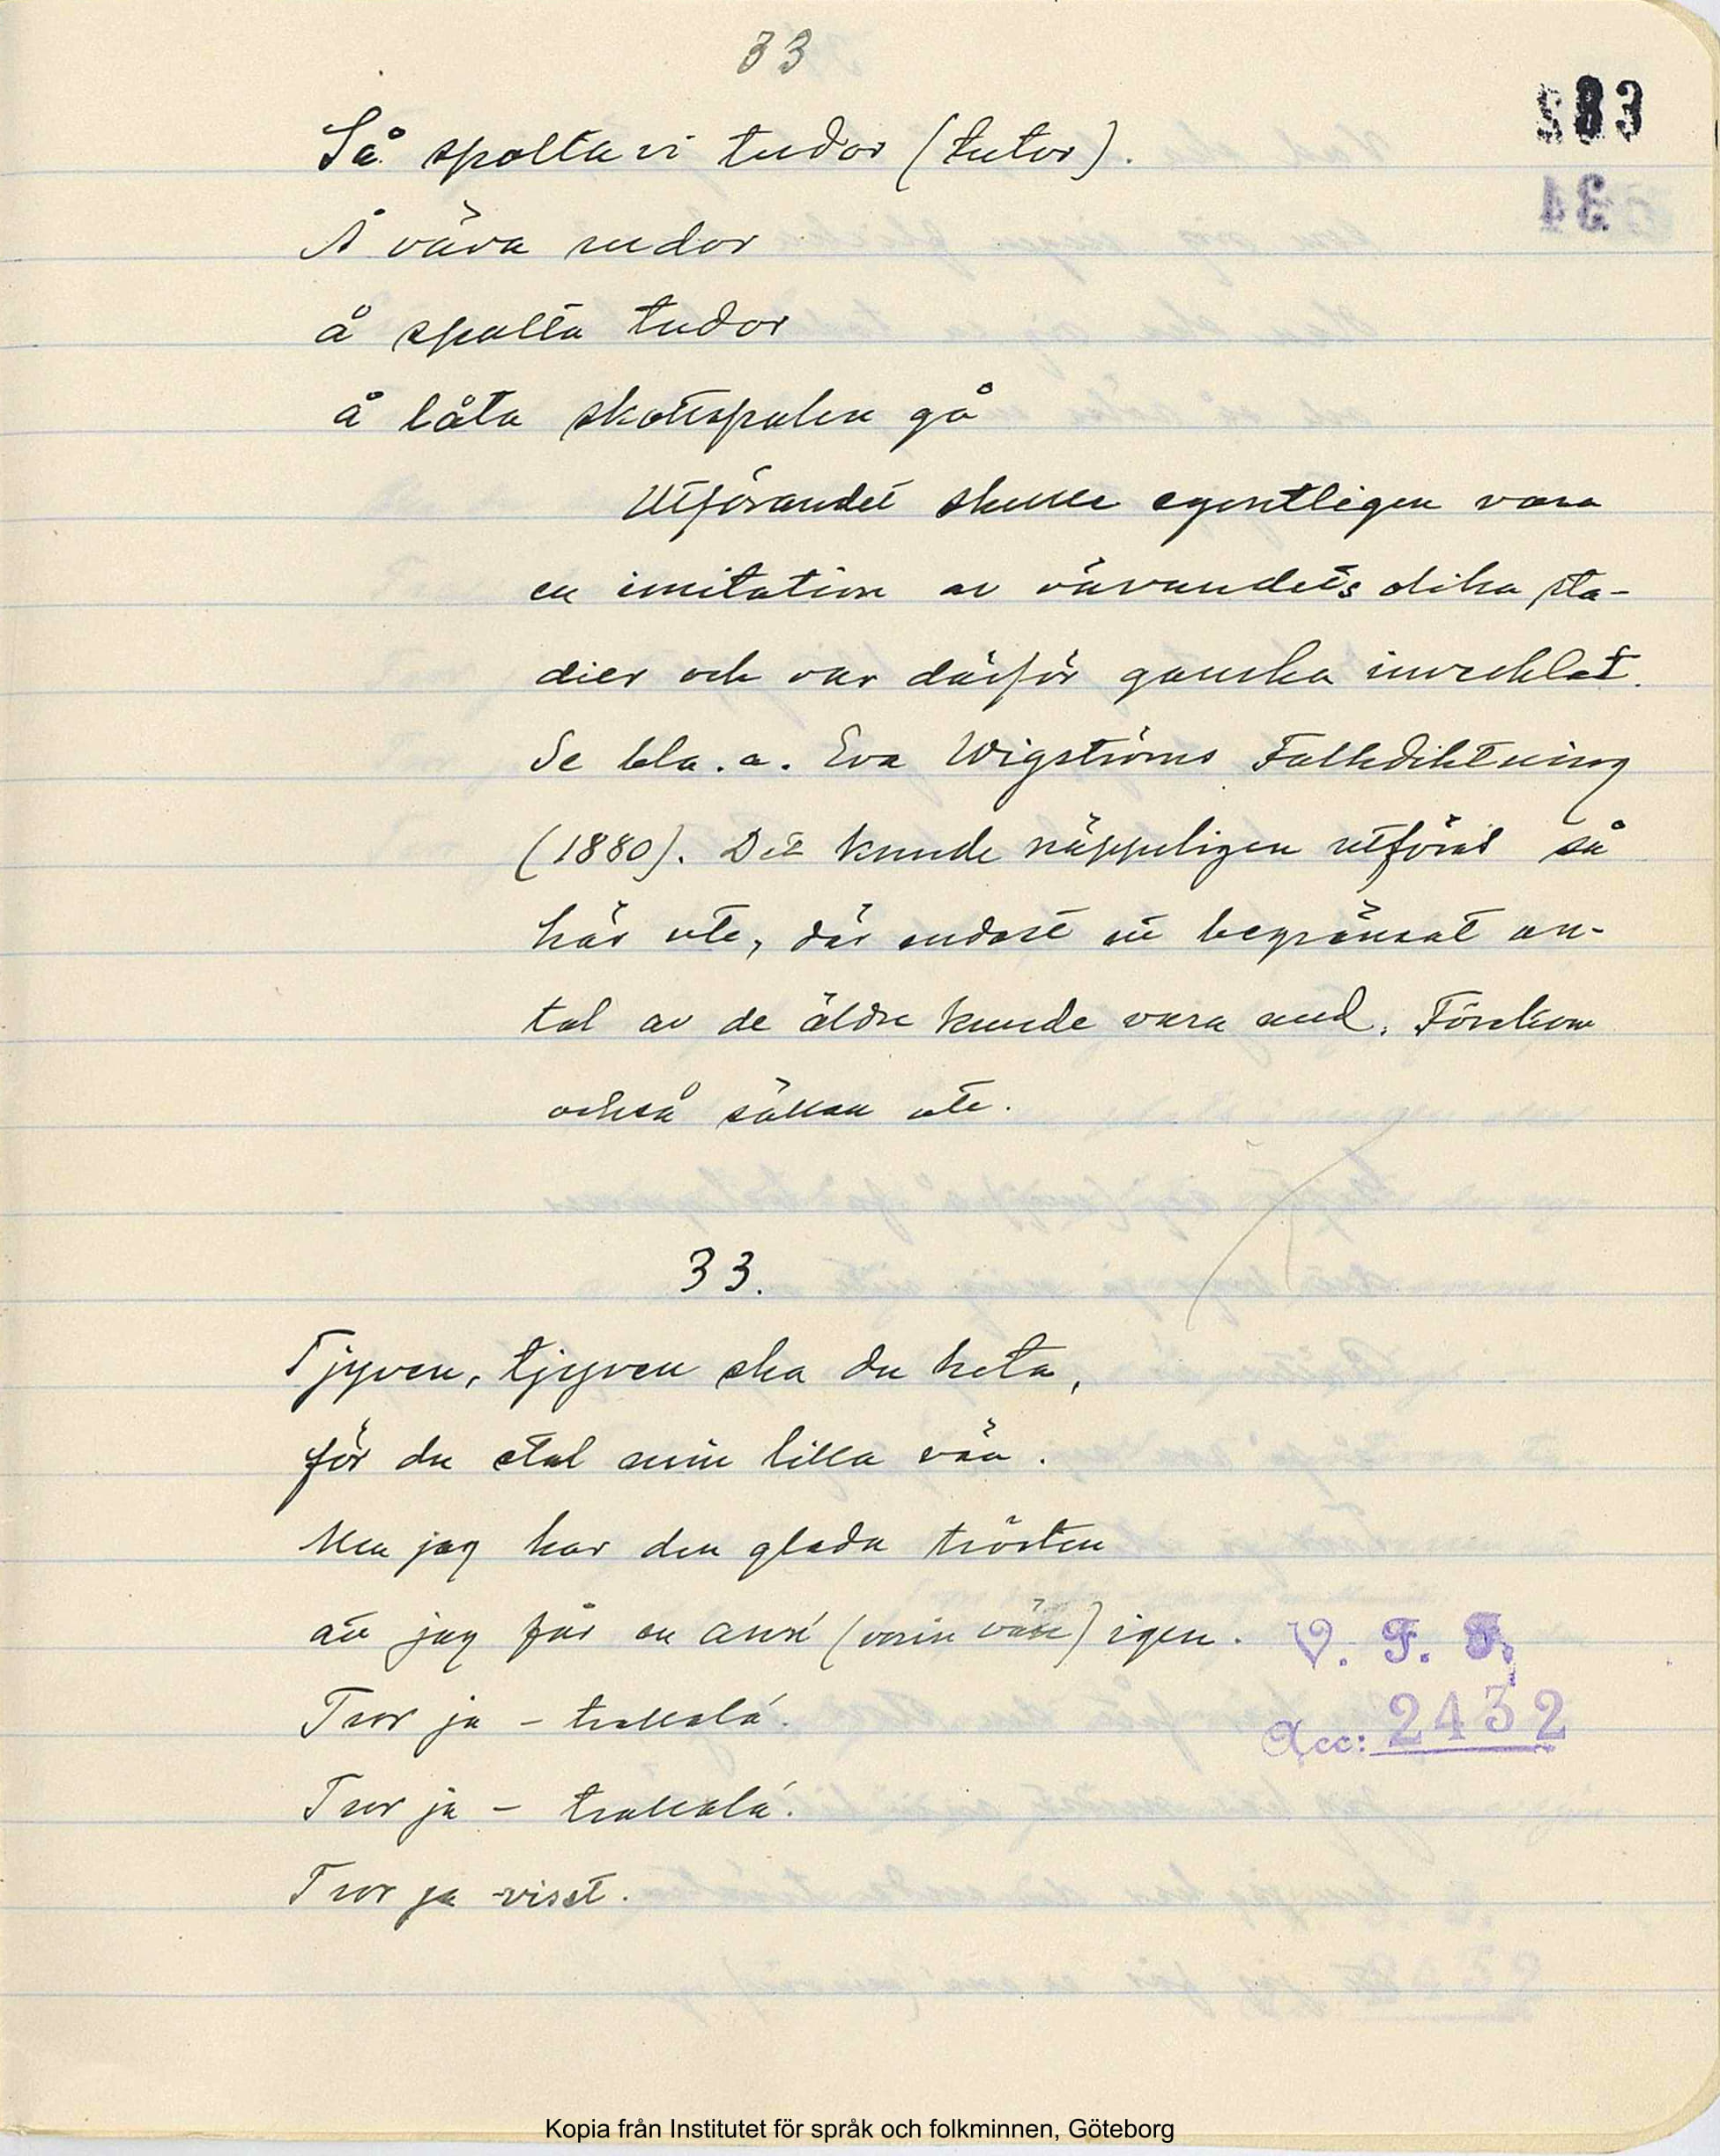 33
283
Så spolta vi tudor (tutor).
Å väva rudor
å spolta tudor
å låta skottspolen gå
Utförandet skulle egentligen vara
en imitation av vävandets olika sta-
dier och var därför ganska invecklat.
Se bla. a. Eva Wigströms Folkdiktning
(1880). Det kunde näppeligen utföras så
här ute, där endast ett begränsat an-
tal av de äldre kunde vara med. Förekom
också sällan ute.
33.
Tjyven, tjyven ska du heta,
för du stal min lilla vän.
Men jag har den glada trösten
att jag får en ann' (min vän) igen.
Tror ja – trallalá.
Tror ja – trallalá.
Tror ja visst.
V. F. F.
Acc: 2432
Kopia från Institutet för språk och folkminnen, Göteborg